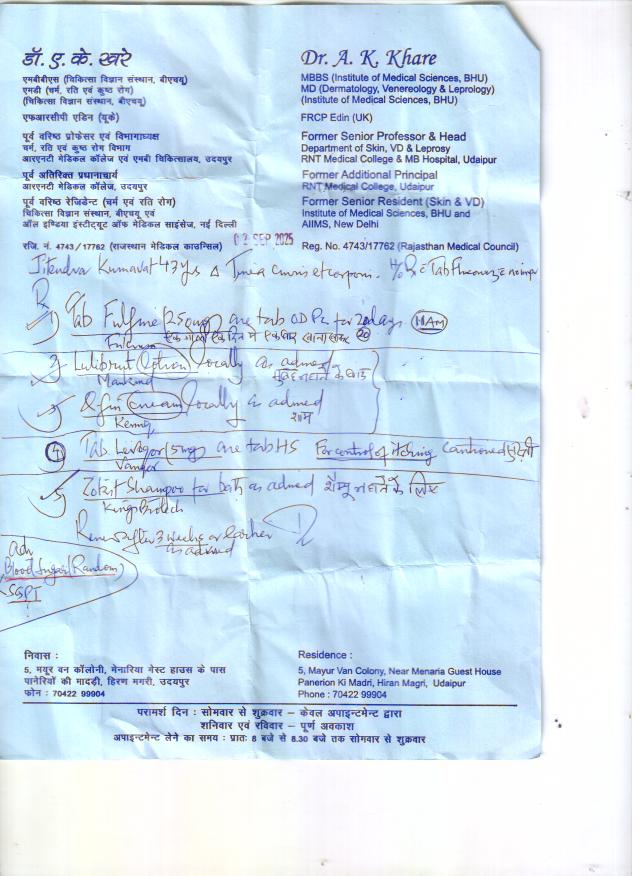 डॉ. ए. के. खरे
एमबीबीएस (चिकित्सा विज्ञान संस्थान, बीएचयू)
एमडी (चर्म, रति एवं कुष्ठ रोग)
(चिकित्सा विज्ञान संस्थान, बीएचयू)
एफआरसीपी एडिन (यूके)
पूर्व वरिष्ठ प्रोफेसर एवं विभागाध्यक्ष
चर्म, रति एवं कुष्ठ रोग विभाग
आरएनटी मेडिकल कॉलेज एवं एमबी चिकित्सालय, उदयपुर
पूर्व अतिरिक्त प्रधानाचार्य
आरएनटी मेडिकल कॉलेज, उदयपुर
पूर्व वरिष्ठ रेजिडेन्ट (चर्म एवं रति रोग)
चिकित्सा विज्ञान संस्थान, बीएचयू एवं
ऑल इण्डिया इंस्टीट्यूट ऑफ मेडिकल साइंसेज, नई दिल्ली
रजि. नं. 4743/17762 (राजस्थान मेडिकल काउन्सिल)
Dr. A. K. Khare
MBBS (Institute of Medical Sciences, BHU)
MD (Dermatology, Venereology & Leprology)
(Institute of Medical Sciences, BHU)
FRCP Edin (UK)
Former Senior Professor & Head
Department of Skin, VD & Leprosy
RNT Medical College & MB Hospital, Udaipur
Former Additional Principal
RNT Medical College, Udaipur
Former Senior Resident (Skin & VD)
Institute of Medical Sciences, BHU and
AIIMS, New Delhi
Reg. No. 4743/17762 (Rajasthan Medical Council)
02 SEP 2025
Jitendra Kumavat 47 yrs Δ Tinea cruris et corporis. H/o Rx c Tab
Rx
1) Tab (250mg) one tab OD for 20 days
एक गोली एक दिन में एक बार खाना खाकर 20
2) Lotion locally as advised
Mankind सुबह नहाने के बाद
3) cream locally as advised
शाम
4 Tab. (5mg) one tab HS For control of itching
5) Shampoo for bath as advised शैम्पू नहाने के लिए
Review after 3 weeks or earlier
as advised
Adv
Blood Sugar (Random)
SGPT
निवास :
5, मयूर वन कॉलोनी, मेनारिया गेस्ट हाउस के पास
पानेरियों की मादड़ी, हिरण मगरी, उदयपुर
फोन : 70422 99904
Residence :
5, Mayur Van Colony, Near Menaria Guest House
Panerion Ki Madri, Hiran Magri, Udaipur
Phone : 70422 99904
परामर्श दिन : सोमवार से शुक्रवार – केवल अपाइन्टमेन्ट द्वारा
शनिवार एवं रविवार – पूर्ण अवकाश
अपाइन्टमेन्ट लेने का समय : प्रातः 8 बजे से 8.30 बजे तक सोमवार से शुक्रवार